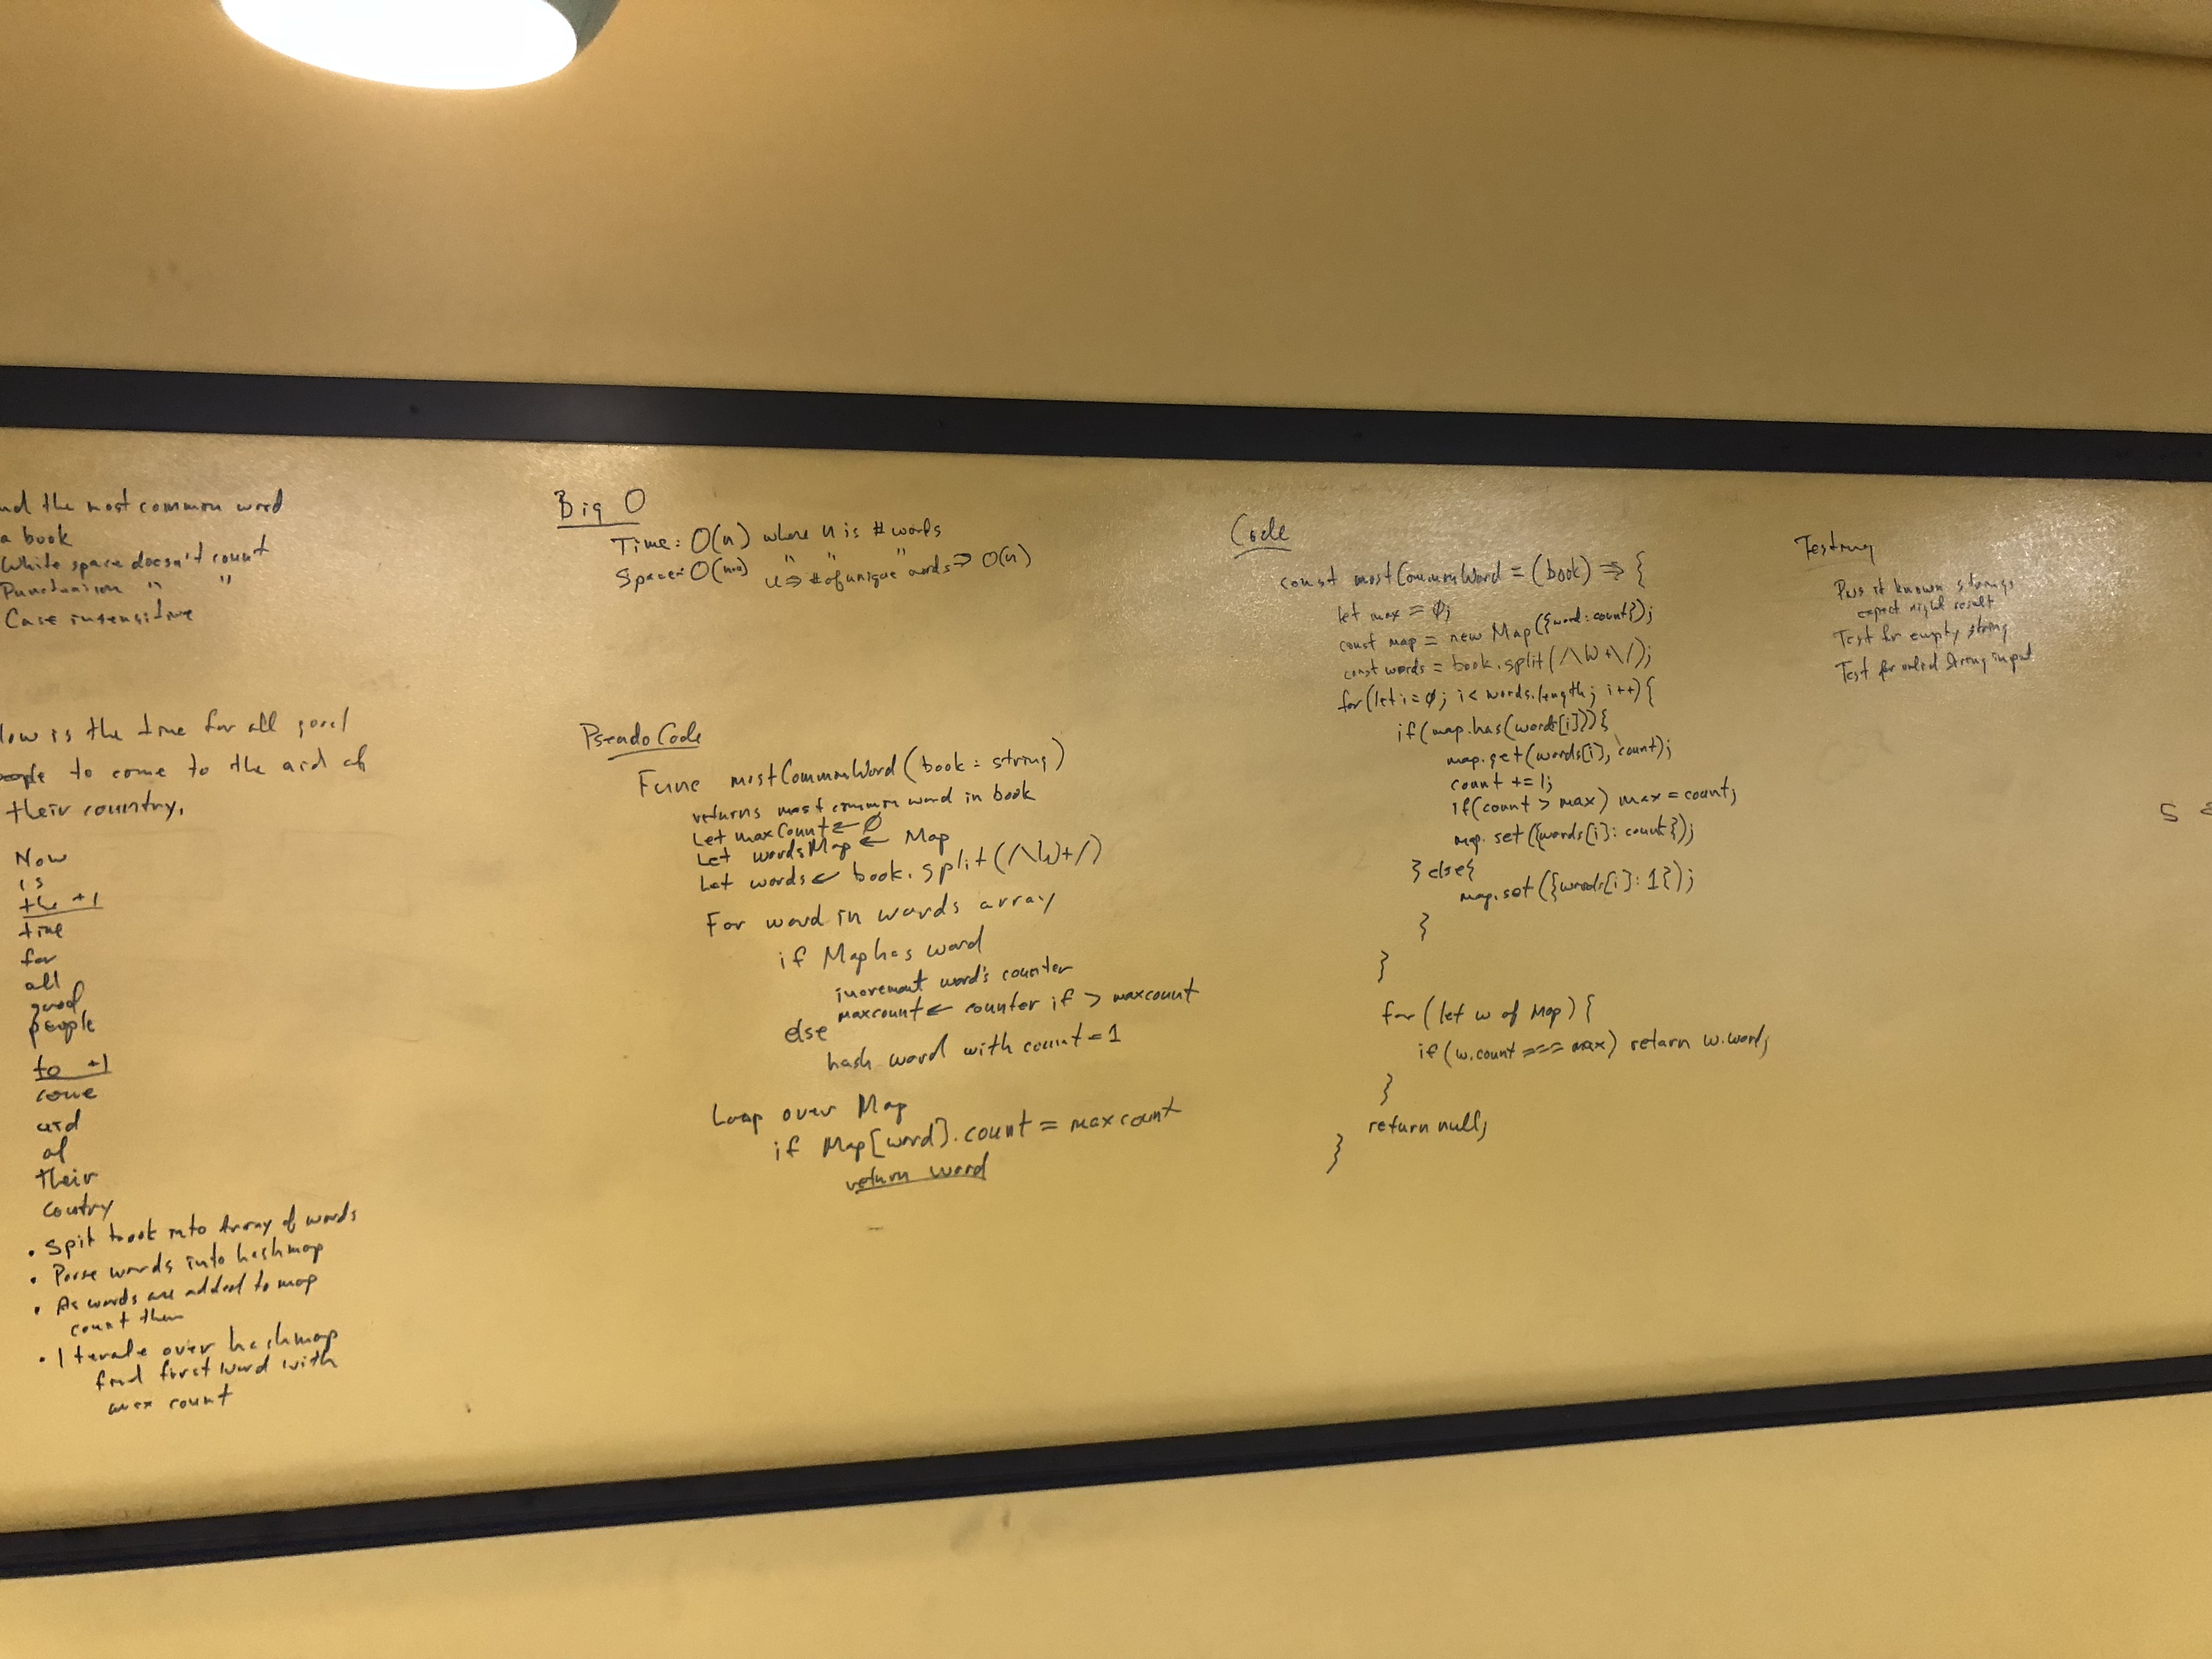 nd the most common word
a book
White space doesn't count
Punctuation " "
Case insensitive
low is the time for all good
eople to come to the aid of
their country.
Now
is
the +1
time
for
all
good
people
to +1
come
aid
of
their
coutry
• Spit book into Array of words
• Parse words into hashmap
• As words are added to map
count them
• Iterate over hashmap
find first word with
max count
Big O
Time: O(n) where n is # words
Space: O( ) " " "
u => # of unique words => O(n)
PseudoCode
Func mostCommonWord(book: string)
returns most common word in book
Let maxCount ← 0
Let wordsMap ← Map
Let words ← book.split(/\W+/)
For word in words array
if Map has word
increment word's counter
maxcount ← counter if > maxcount
else
hash word with count = 1
Loop over Map
if Map[word].count = maxcount
return word
Code
const mostCommonWord = (book) => {
let max = 0;
const map = new Map({word:count});
const words = book.split(/\W+\/);
for(let i=0; i < words.length; i++){
if(map.has(words[i])){
map.get(words[i], count);
count += 1;
if(count > max) max = count;
map.set({words[i]: count});
} else{
map.set({words[i]: 1});
}
}
for (let w of Map) {
if (w.count === max) return w.word;
}
return null;
}
Testing
Pass it known strings
expect right result
Test for empty string
Test for valid string input
S